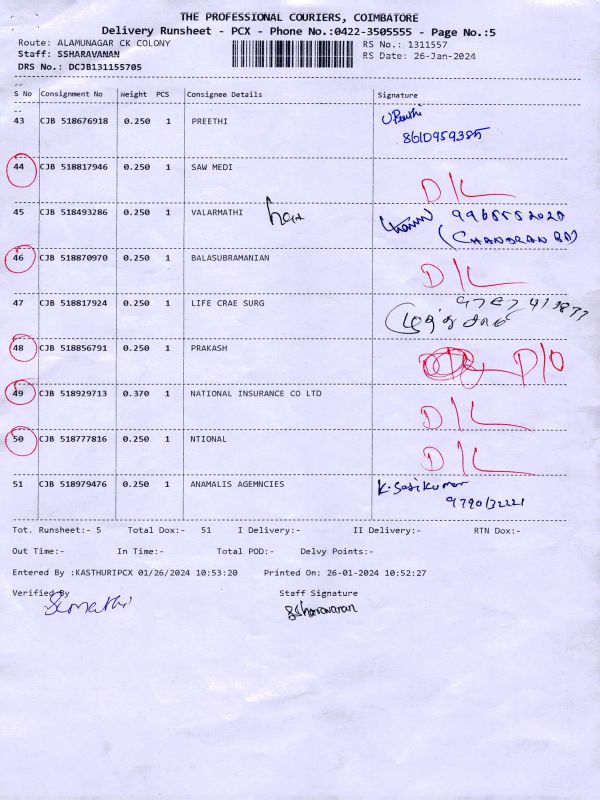 THE PROFESSIONAL COURIERS, COIMBATORE
Delivery Runsheet - PCX - Phone No.:0422-3505555 - Page No.:5
Route: ALAMUNAGAR CK COLONY RS No.: 1311557
Staff: SSHARAVANAN RS Date: 26-Jan-2024
DRS No.: DCJB131155705
S No Consignment No Weight PCS Consignee Details Signature
43 CJB 518676918 0.250 1 PREETHI
8610959385
44 CJB 518817946 0.250 1 SAW MEDI
D/L
45 CJB 518493286 0.250 1 VALARMATHI
(CHANDRAN
46 CJB 518870970 0.250 1 BALASUBRAMANIAN
D/L
47 CJB 518817924 0.250 1 LIFE CRAE SURG
48 CJB 518856791 0.250 1 PRAKASH
D/O
49 CJB 518929713 0.370 1 NATIONAL INSURANCE CO LTD
D/L
50 CJB 518777816 0.250 1 NTIONAL
D/L
51 CJB 518979476 0.250 1 ANAMALIS AGEMNCIES K. Sasikumar
Tot. Runsheet:- 5 Total Dox:- 51 I Delivery:- II Delivery:- RTN Dox:-
Out Time:- In Time:- Total POD:- Delvy Points:-
Entered By :KASTHURIPCX 01/26/2024 10:53:20 Printed On: 26-01-2024 10:52:27
Verified By Staff Signature